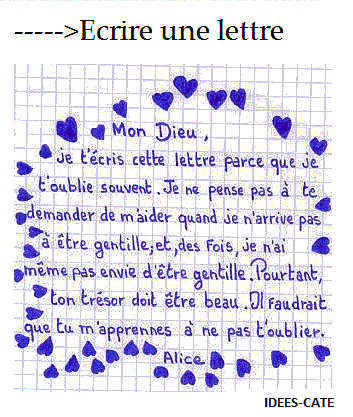 ----->Ecrire une lettre
Mon Dieu,
je t'écris cette lettre parce que je
t'oublie souvent. Je ne pense pas à te
demander de m'aider quand je n'arrive pas
à être gentille; et, des fois, je n'ai
même pas envie d'être gentille. Pourtant,
ton trésor doit être beau. Il faudrait
que tu m'apprennes à ne pas t'oublier.
Alice
IDEES-CATE